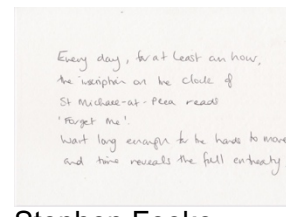 Every day, for at least an hour,
the inscription on the clock of
St Michael-at-Plea reads
'Forget Me'.
Wait long enough for the hands to move
and time reveals the full entreaty